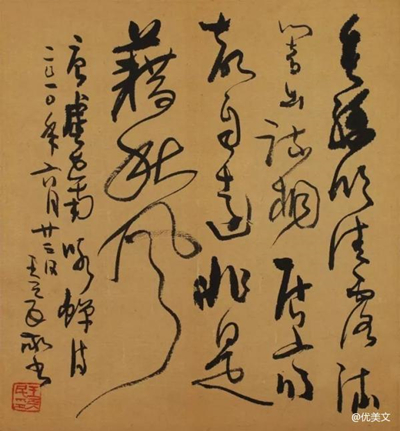 垂緌饮清露流
响出疏桐居高
声自远非是
藉秋风
唐虞世南咏蝉诗
二〇一〇年六月廿日
书
@优美文